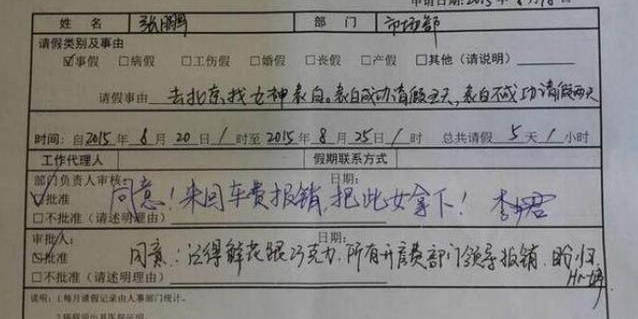 申请日期:2015年8月18日
姓 名 张鹏 部 门 市场部
请假类别及事由
☑事假 □病假 □工伤假 □婚假 □丧假 □产假 □其他（请说明）
请假事由 去北京找女神表白。表白成功请假五天，表白不成功请假两天
时间：自2015年8月20日1时至2015年8月25日1时 总共请假5天1小时
工作代理人 假期联系方式
部门负责人审核： 日期：
☑批准 同意！来回车费报销，把此女拿下！ 李君
□不批准（请述明理由）
审批人： 日期：
☑批准 同意：记得鲜花跟巧克力，所有开房费部门领导报销，盼归
□不批准（请述明理由）
说明：1.每月请假记录由人事部门统计。